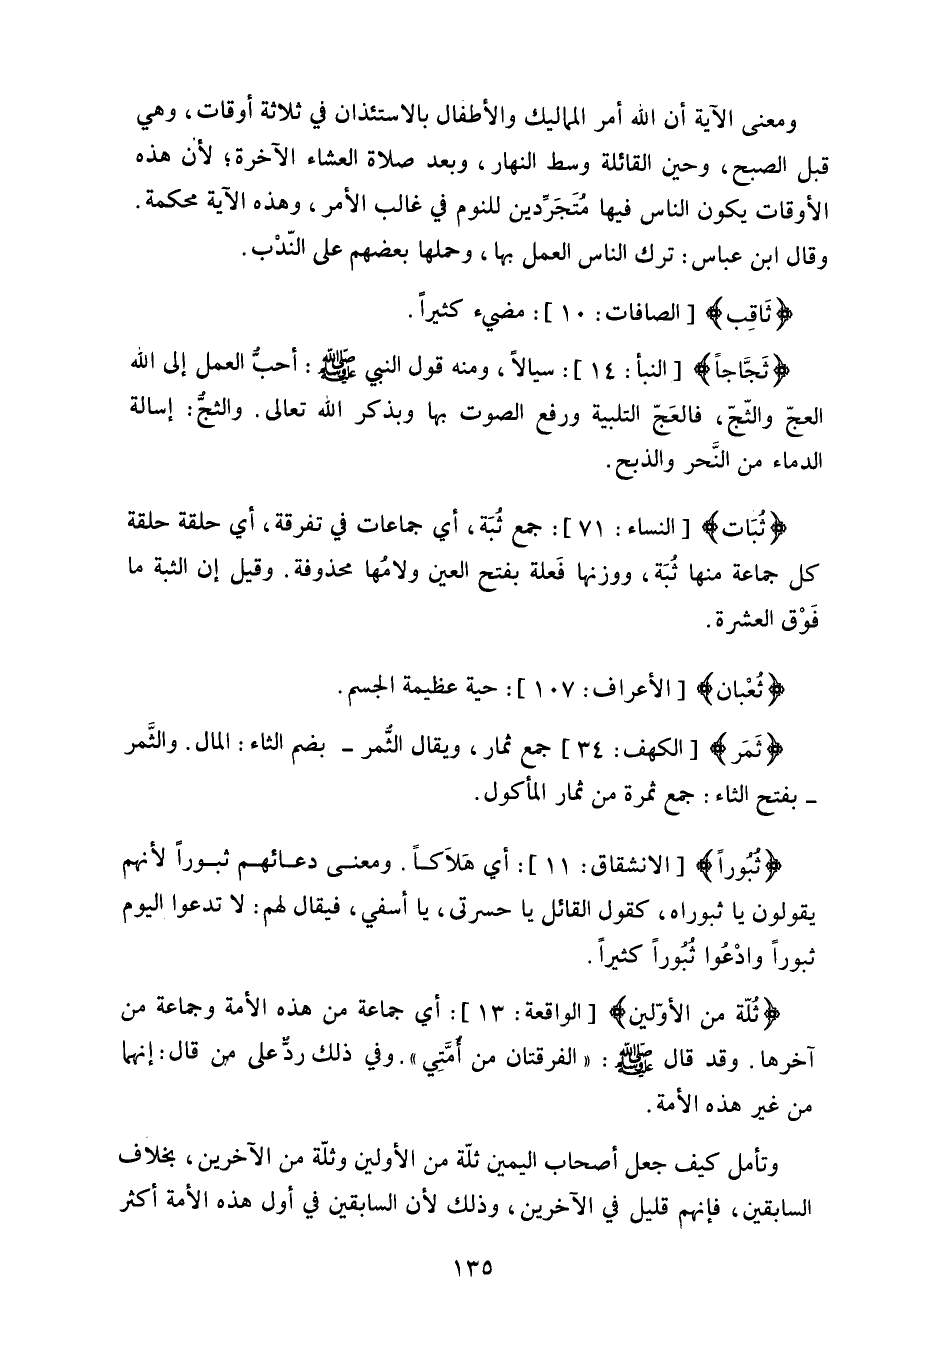 ومعنى الآية أن الله أمر المماليك والأطفال بالاستئذان في ثلاثة أوقات، وهي
قبل الصبح، وحين القائلة وسط النهار، وبعد صلاة العشاء الآخرة؛ لأن هذه
الأوقات يكون الناس فيها مُتَجَرِّدين للنوم في غالب الأمر، وهذه الآية محكمة.
وقال ابن عباس: ترك الناس العمل بها، وحملها بعضهم على النّدْب.
﴿ثَاقِب﴾ [الصافات: ١٠]: مضيء كثيراً.
﴿ثَجَّاجاً﴾ [النبأ: ١٤]: سيالاً، ومنه قول النبي ﷺ: أحبُّ العمل إلى الله
العجّ والثّجّ، فالعَجّ التلبية ورفع الصوت بها وبذكر الله تعالى. والثجُّ: إسالة
الدماء من النَّحر والذبح.
﴿ثُبَات﴾ [النساء: ٧١]: جمع ثُبَة، أي جماعات في تفرقة، أي حلقة حلقة
كل جماعة منها ثُبَة، ووزنها فَعلة بفتح العين ولامُها محذوفة. وقيل إن الثبة ما
فَوْق العشرة.
﴿ثُعْبان﴾ [الأعراف: ١٠٧]: حية عظيمة الجسم.
﴿ثَمَر﴾ [الكهف: ٣٤] جمع ثمار، ويقال الثُّمر ـ بضم الثاء: المال. والثَّمر
ـ بفتح الثاء: جمع ثمرة من ثمار المأكول.
﴿ثُبُوراً﴾ [الانشقاق: ١١]: أي هَلاَكاً. ومعنى دعائهم ثبوراً لأنهم
يقولون يا ثبوراه، كقول القائل يا حسرتى، يا أسفي، فيقال لهم: لا تدعوا اليوم
ثبوراً وادْعُوا ثُبُوراً كثيراً.
﴿ثُلّة من الأوّلين﴾ [الواقعة: ١٣]: أي جماعة من هذه الأمة وجماعة من
آخرها. وقد قال ﷺ: «الفرقتان من أُمَّتِي». وفي ذلك ردٌّ على من قال: إنهما
من غير هذه الأمة.
وتأمل كيف جعل أصحاب اليمين ثلّة من الأولين وثلّة من الآخرين، بخلاف
السابقين، فإنهم قليل في الآخرين، وذلك لأن السابقين في أول هذه الأمة أكثر
١٣٥